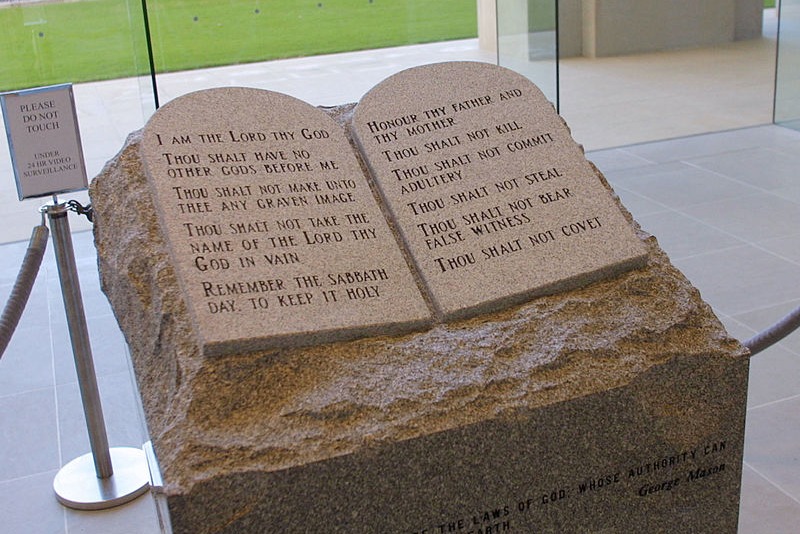 PLEASE
DO NOT
TOUCH
UNDER
24 HR VIDEO
SURVEILLANCE
I AM THE LORD THY GOD
THOU SHALT HAVE NO
OTHER GODS BEFORE ME
THOU SHALT NOT MAKE UNTO
THEE ANY GRAVEN IMAGE
THOU SHALT NOT TAKE THE
NAME OF THE LORD THY
GOD IN VAIN
REMEMBER THE SABBATH
DAY, TO KEEP IT HOLY
HONOUR THY FATHER AND
THY MOTHER
THOU SHALT NOT KILL
THOU SHALT NOT COMMIT
ADULTERY
THOU SHALT NOT STEAL
THOU SHALT NOT BEAR
FALSE WITNESS
THOU SHALT NOT COVET
THE LAWS OF GOD, WHOSE AUTHORITY CAN
EARTH
George Mason